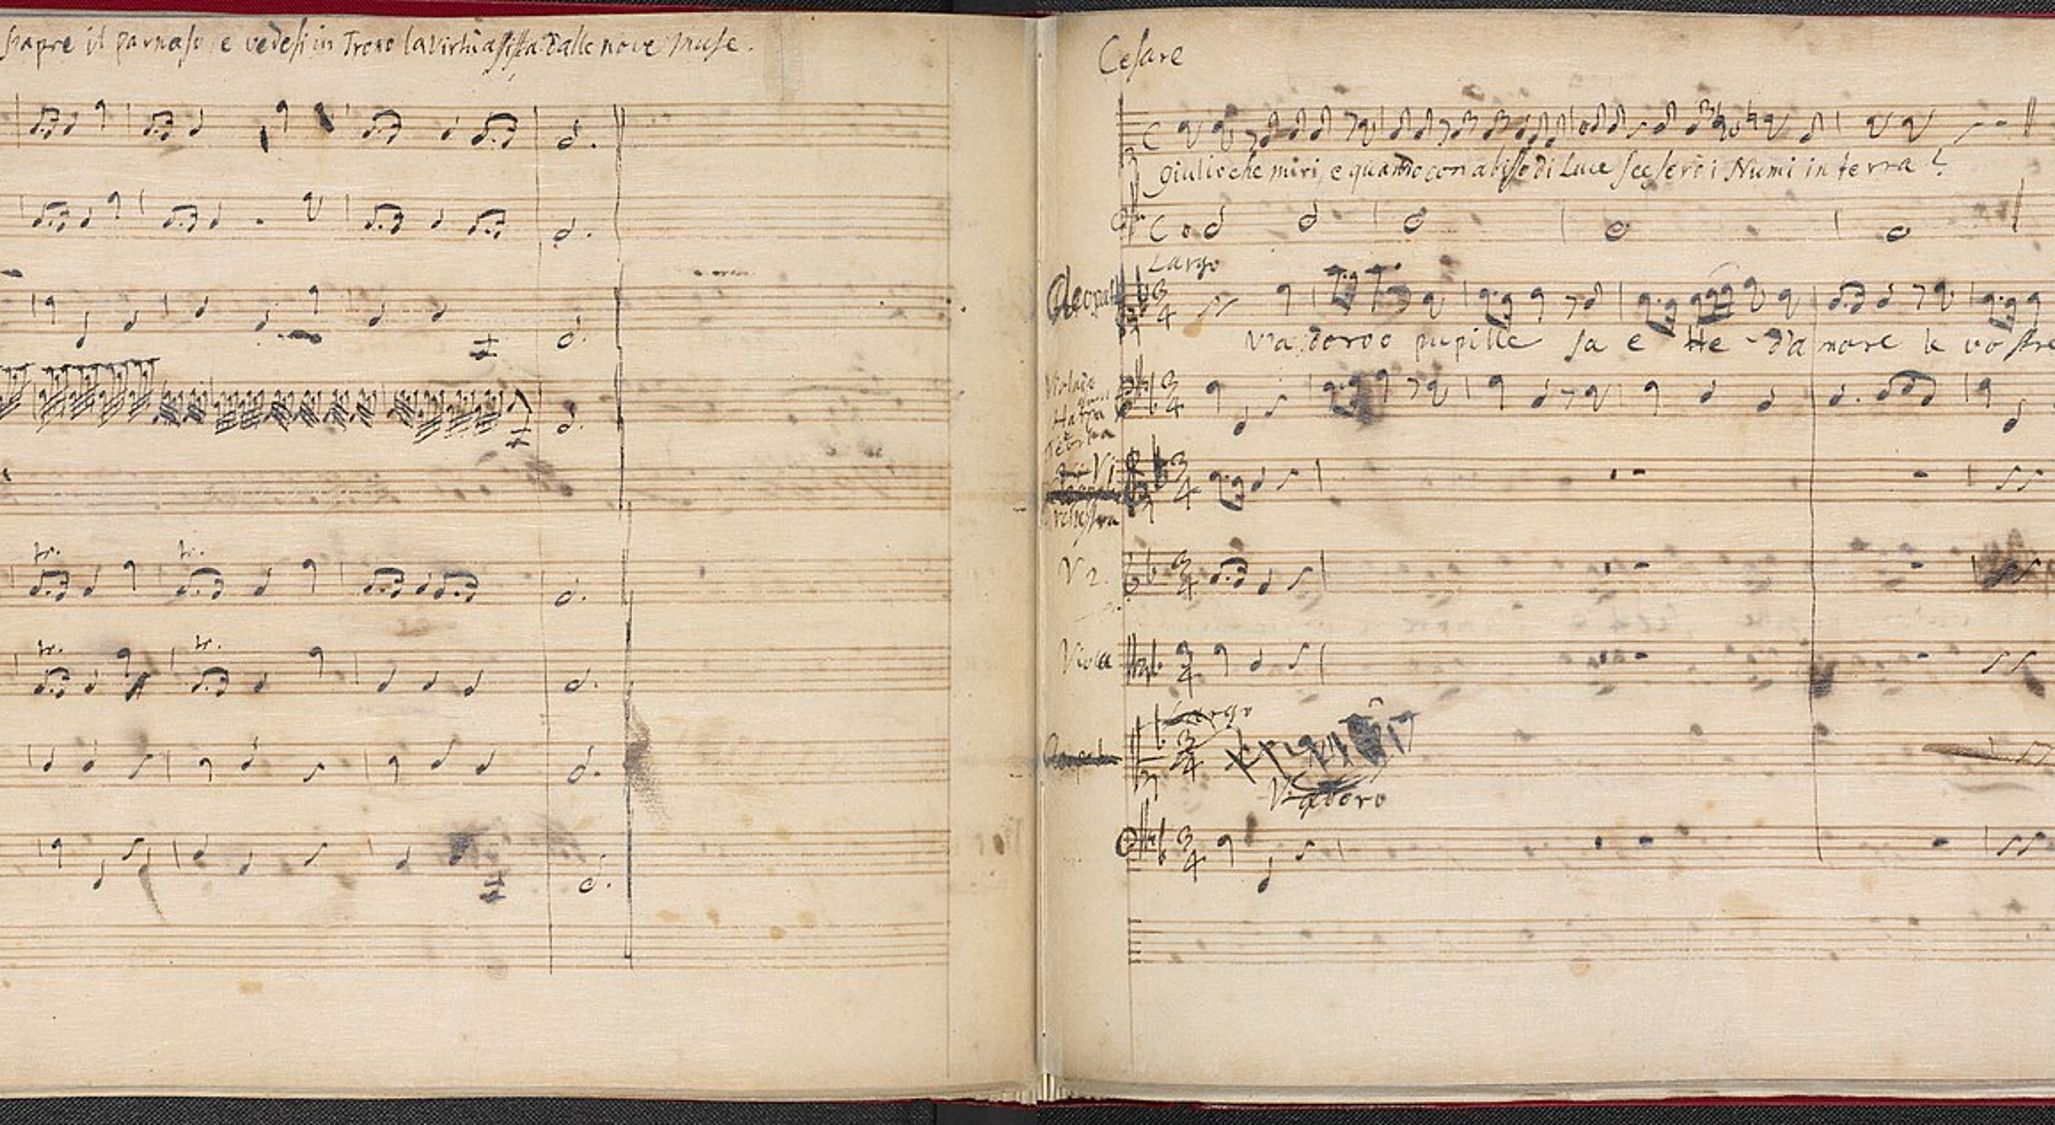 s'apre il parnaso, e vedesi in Trono la virtù assisa dalle nove Muse.
tr. tr.
tr. tr.
Cesare
C
Giulio che miri, e quando con abisso di Luce scesero i Numi in terra?
C
Largo
Cleopatra
3/4
V'adoro o pupille sa e tte d'amore le vostre
Viola
Harpa
Teorba
3/4
V 1
Orchestra
3/4
V 2.
3/4
Viola
3/4
Largo
3/4
V'adoro
3/4